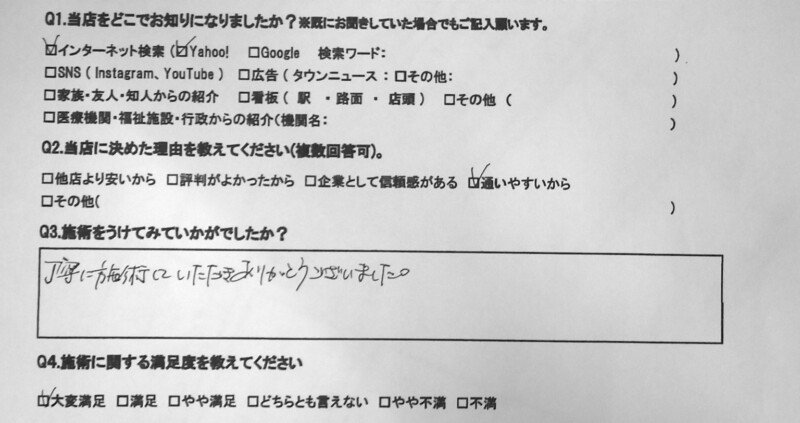 Q1.当店をどこでお知りになりましたか?※既にお聞きしていた場合でもご記入願います。
☑インターネット検索(☑Yahoo! □Google 検索ワード: )
□SNS(Instagram、YouTube) □広告(タウンニュース:□その他: )
□家族・友人・知人からの紹介 □看板(駅・路面・店頭) □その他( )
□医療機関・福祉施設・行政からの紹介(機関名: )
Q2.当店に決めた理由を教えてください(複数回答可)。
□他店より安いから □評判がよかったから □企業として信頼感がある ☑通いやすいから
□その他( )
Q3.施術をうけてみていかがでしたか?
丁寧に施術していただきありがとうございました。
Q4.施術に関する満足度を教えてください
☑大変満足 □満足 □やや満足 □どちらとも言えない □やや不満 □不満